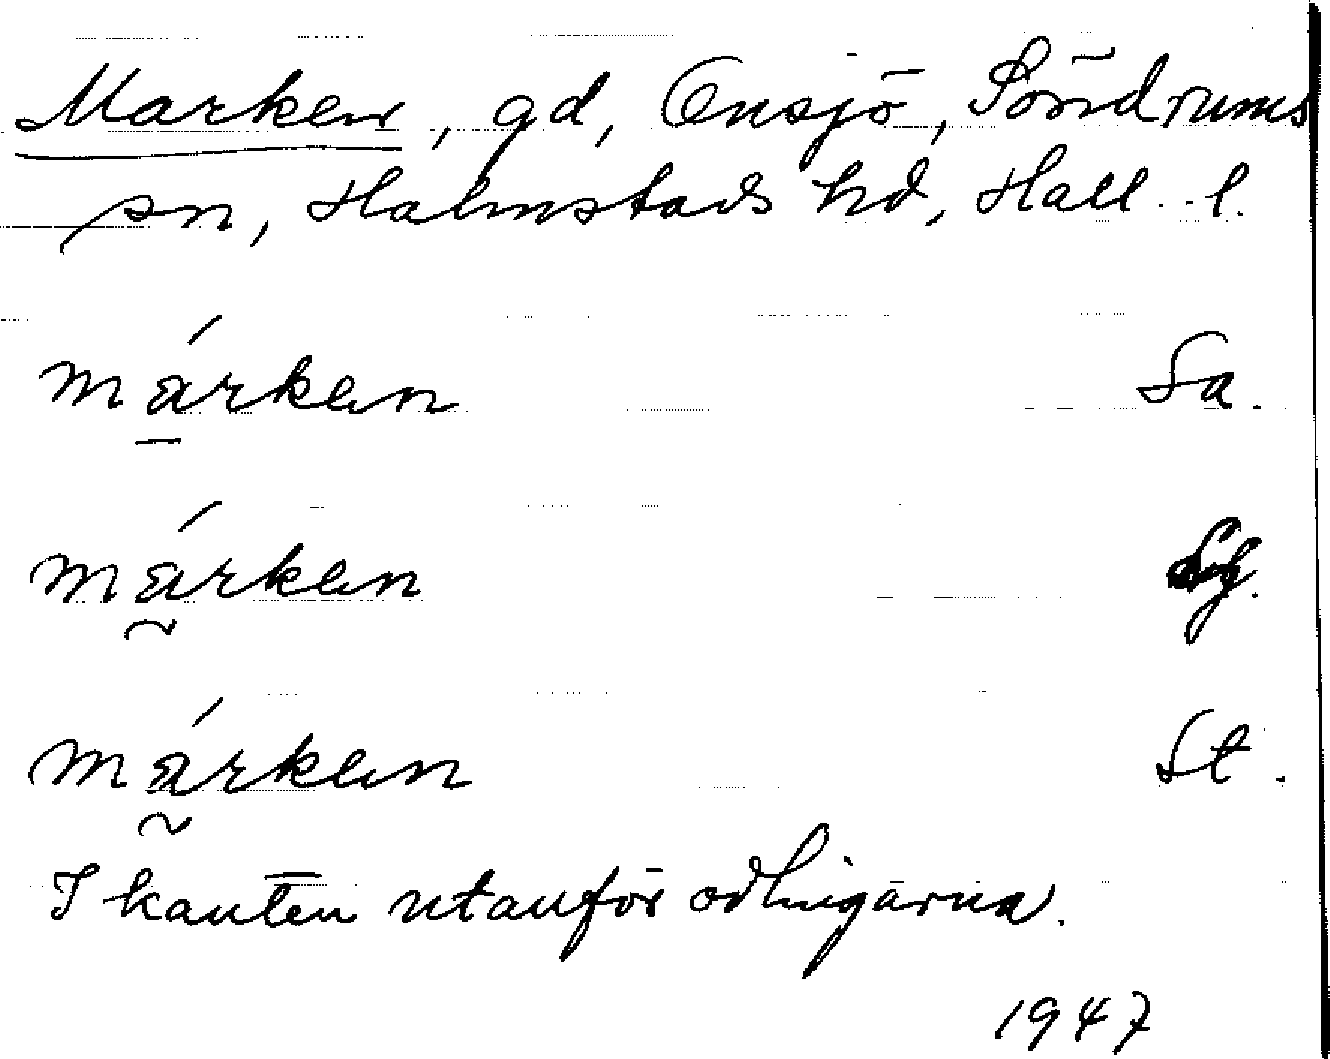 Marken, gd, Onsjö, Söndrums
sn, Halmstads hd, Hall. l.
márken Sa.
márken Sg.
márken St.
I kanten utanför odlingarna.
1947